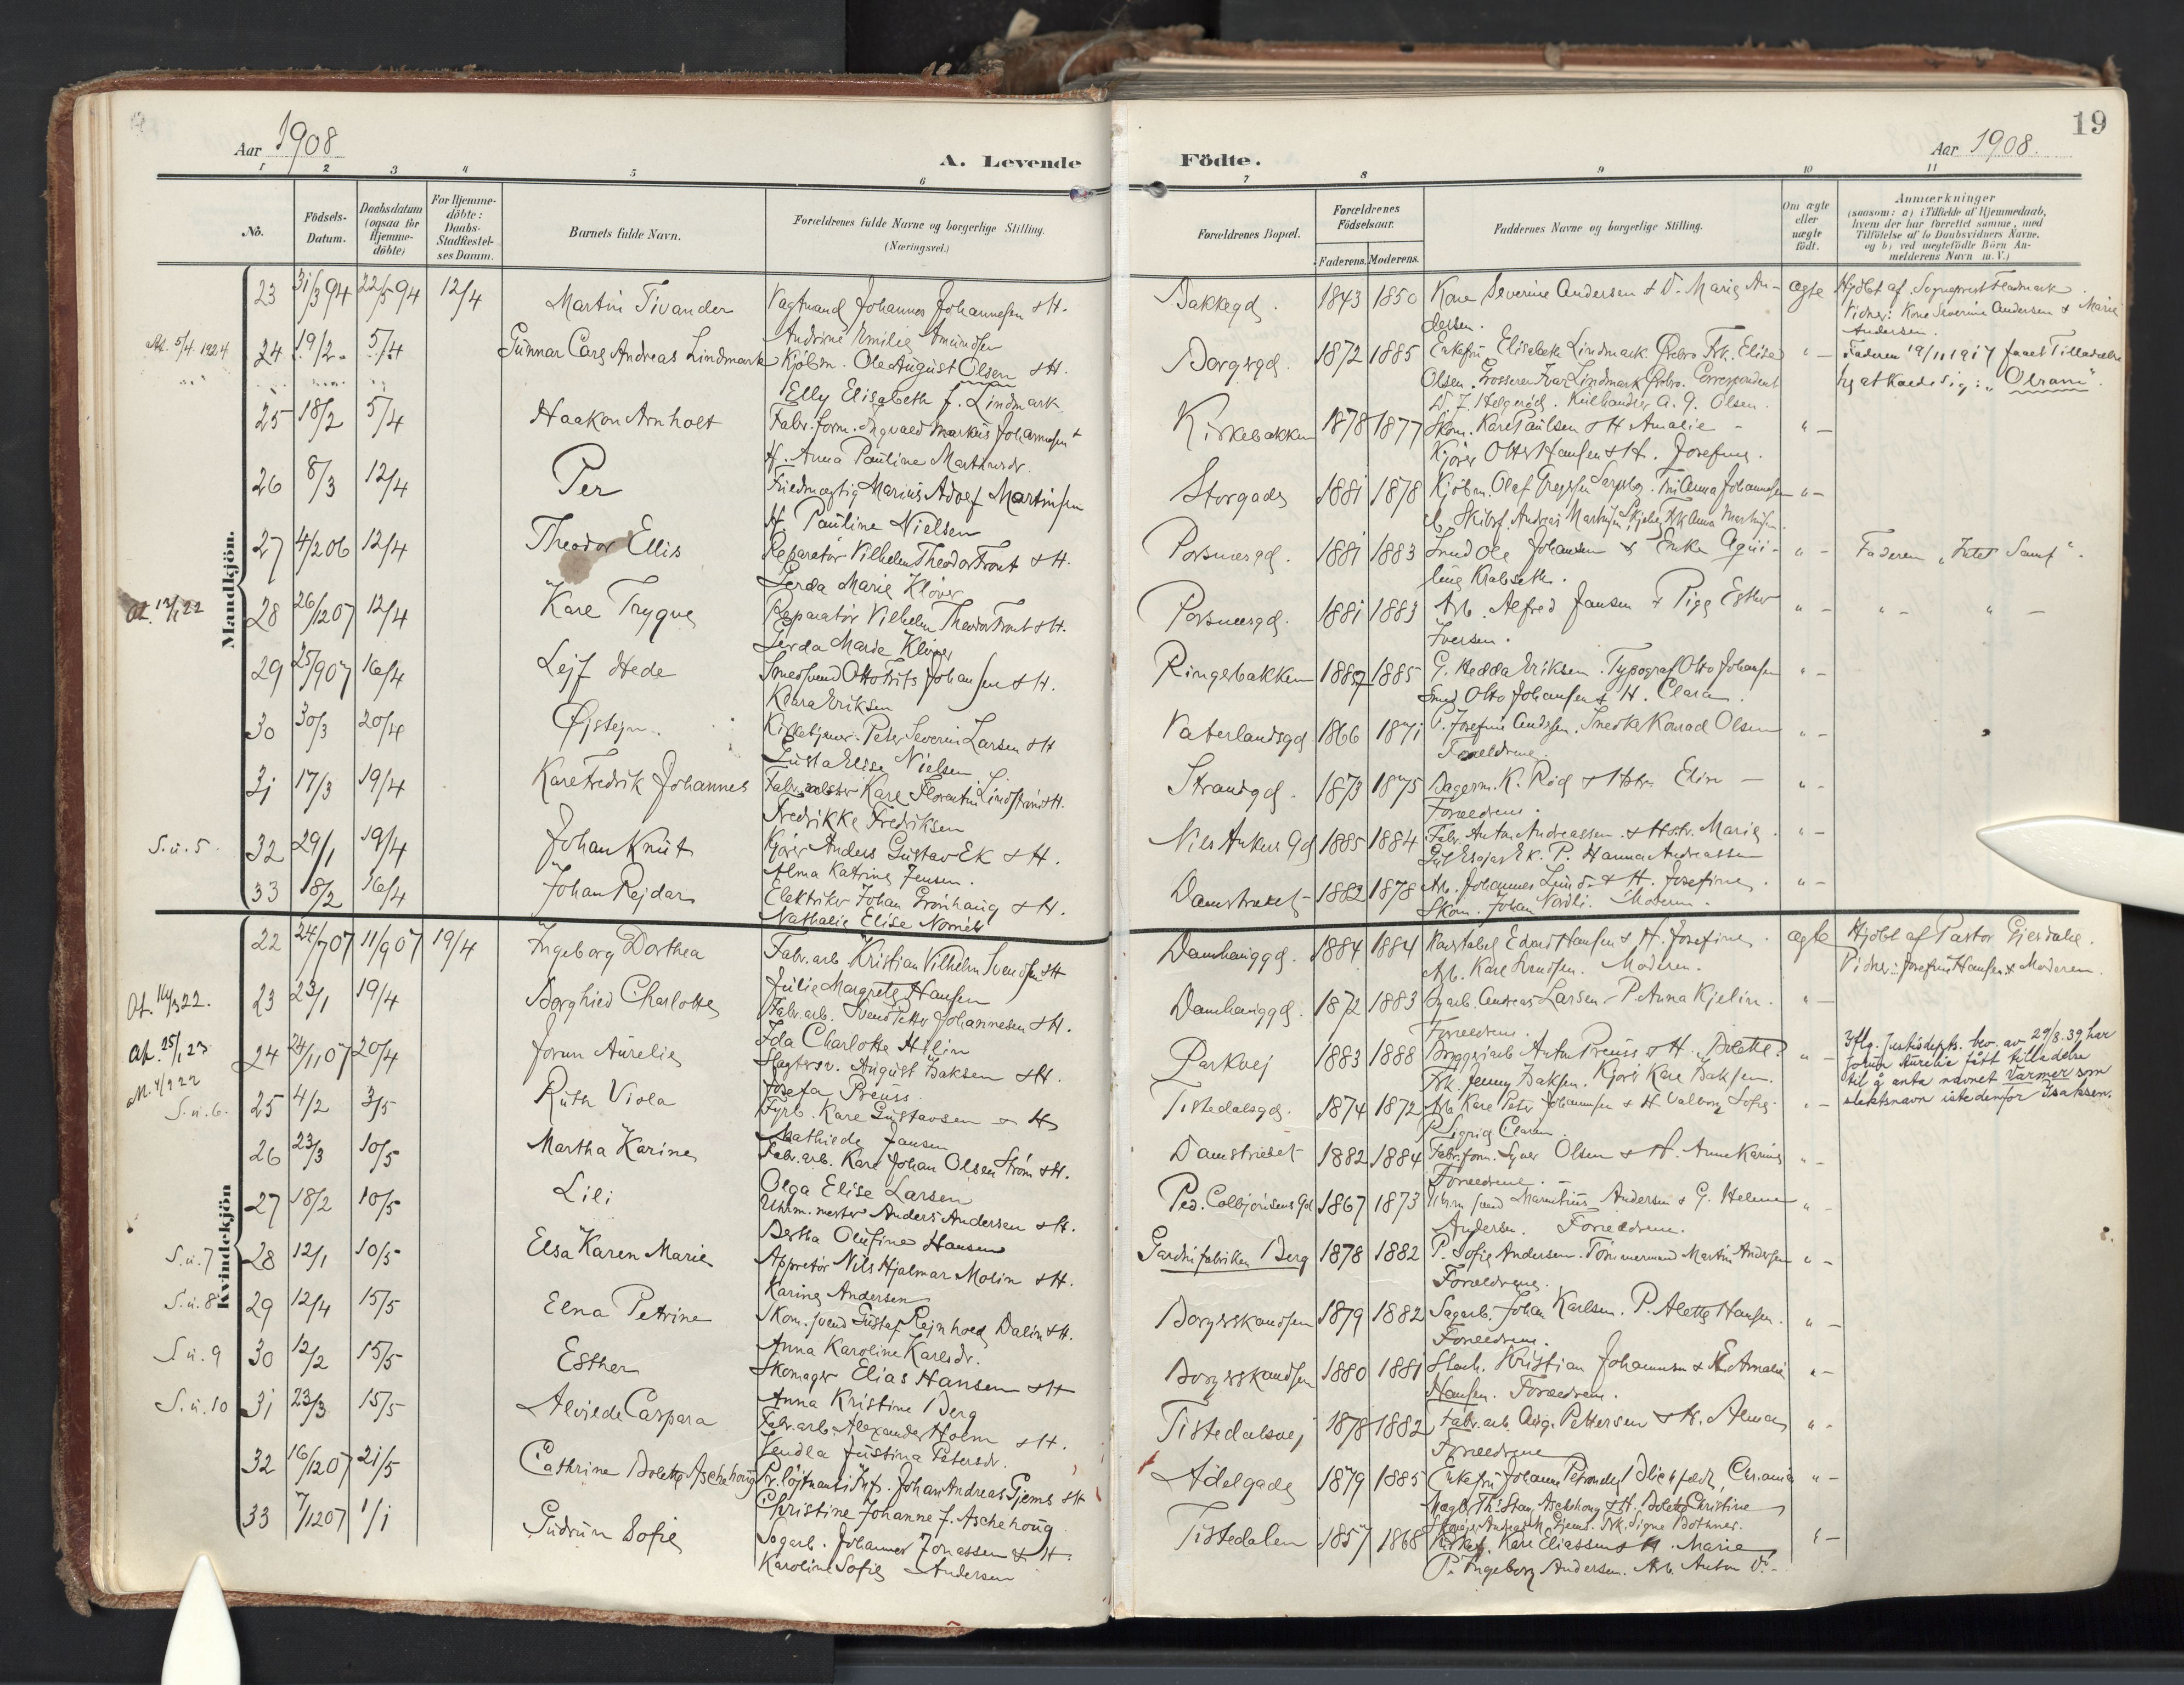 19
Aar 1908
A. Levende
Födte.
Aar 1908.
1 2 3 4 5 6 7 8 9 10 11
No.
Födsels-Datum.
Daabsdatum (ogsaa for Hjemme-döbte)
For Hjemme-döbte: Daabs-Stadfestel-ses Datum.
Barnets fulde Navn.
Forældrenes fulde Navne og borgerlige Stilling. (Næringsvei.)
Forældrenes Bopæl.
Forældrenes Födselsaar.
Faderens. Moderens.
Faddernes Navne og borgerlige Stilling.
Om ægte eller uægte födt.
Anmærkninger
(saasom: a) i Tilfælde af Hjemmedaab, hvem der har forrettet samme, med Tilföielse af to Daabsvidners Navne, og b) ved uægtefödte Börn An-melderens Navn m. V.)
Mandkjön.
23 31/3 94 22/5 94 12/4 Martin Tivander Vagtmand Johannes Johannesen & H. Andrine Emilie Amundsen Bakkegd. 1843 1850 Kone Severine Andersen & D. Marie Andersen. ægte Hjdbt af Sogneprest
Vidner: Kone Severine Andersen & Marie Andersen.
At. 5/4 1924 24 19/2 5/4 Gunnar Carl Andreas Lindmark Kjöbm. Ole August Olsen & H. Elly Elisabeth f. Lindmark Borgergd. 1872 1885 Enkefru Elisabeth Lindmark Örebro Frk. Elise Olsen. Grosserer Ivar Lindmark Örebro. Correspondent Helgeröd. Kulhandler A. G. Olsen. " — Faderen 19/11 1917 faaet Tilladelse til at kalde sig: "Olram".
25 18/2 5/4 Haakon Arnholt Fabr. form. Ingvald Markus Johannesen & H. Anna Pauline Martinsdr. Kirkebakken 1878 1877 Skom. Karl Paulsen & H. Amalie — Kjörer Otto Hansen & H. Josefine. " —
26 8/3 12/4 Per Marius Adolf Martinsen H. Pauline Nielsen Storgade 1881 1878 Kjöbm. Olaf Sarpsbg. Fru Anna Johannesen Andreas Martinsen Frk Anna Martinsen. " —
27 4/2 06 12/4 Theodor Ellis Reparatör Vilhelm Theodor Front & H. Gerda Marie Klöver Porsnesgd. 1881 1883 Smed Ole Johansen & Enke Krabseth. " — Faderen "Intet Samf".
At. 12/1 22 28 26/12 07 12/4 Karl Trygve Reparatör Vilhelm Theodor Front & H. Gerda Marie Klöver Porsnesgd. 1881 1883 Arb. Alfred Jansen & Pige Esther Iversen. " — " — " —
29 25/9 07 16/4 Leif Hede Smedsvend Otto Frits Johansen & H. Klara Eriksen Ringsbakken 1887 1885 G. Hedda Eriksen. Typograf Otto Johansen Smed Otto Johansen & H. Clara. " —
30 30/3 20/4 Øistejn. Peter Severin Larsen & H. Elise Nielsen Vaterlandsgd 1866 1871 P. Josefine Konrad Olsen Forældrene. " —
31 17/3 19/4 Karl Fredrik Johannes Karl Florentin Lindström & H. Fredrikke Fredriksen Strandgd. 1873 1875 Bagerm. K. Röd & Hstr. Elin — Forældrene. " —
S. u. 5. 32 29/1 19/4 Johan Knut Kjörer Anders Gustav Ek & H. Alma Katrine Jensen. Nils Ankers Gd 1885 1884 Fabr. Anton Andreassen & Hstr. Marie. Ek. P. Hanna Andreassen " —
33 18/2 16/4 Johan Rejdar Elektriker Johan Grönhaug & H. Nathalie Elise Damstrædet 1882 1878 Arb. Johannes Lund & H. Josefine. Skom. Johan Nordli. Moderen. " —
Kvindekjön
22 24/7 07 11/9 07 19/4 Ingeborg Dorthea Fabr. arb. Kristian Vilhelm Svendsen & H. Julie Margrete Hansen Damhauggd. 1884 1884 Edvard Hansen & H. Josefine. Arb. Karl Svendsen. Moderen. ægte Hjdbt af Pastor Gjerdahl. Vidner: Josefine Hansen & Moderen.
At. 14/3 22. 23 23/1 19/4 Borghild Charlotte Fabr. arb. Svend Petter Johannesen & H. Ida Charlotte Helin Damhauggd. 1872 1883 Andreas Larsen. P. Anna Kjelin. Forældrene. " —
At. 25/1 23 24 24/11 07 20/4 Jorun Aurelie Slagtersv. August Isaksen & H. Josefa Preuss Parkvej 1883 1888 Bryggeriarb Anton Preuss & H. Bolette. Frk. Jenny Isaksen. Kjörer Karl Isaksen. " — Iflg. Justisdepts. bev. av 29/8.39 har Jorun Aurelie fått tilladelse til å anta navnet Varmer som slektsnavn istedenfor Isaksen.
M. 4/9 22 S. u. 6. 25 4/2 3/5 Ruth Viola Fyrb. Karl Gustavsen & H. Mathilde Jansen Tistedalsgd. 1874 1872 Arb Karl Peter Johannesen & H. Valborg Sofie. P. Sigrid Claren. " —
26 23/3 10/5 Martha Karine Fabr. arb. Karl Johan Olsen Ström & H. Olga Elise Larsen Damstrædet 1882 1884 Fabr. form. Olsen & H. Anne Karine Forældrene. — " —
27 18/2 10/5 Lili Uhrm. mester Anders Andersen & H. Bertha Olufine Hansen Ped. Colbjörnsens Gd 1867 1873 Andersen & G. Helene Andersen. Forældrene. " —
S. u. 7 28 12/1 10/5 Elsa Karen Marie Appretör Nils Hjalmar Molin & H. Karine Andersen Gardinfabriken Berg 1878 1882 P. Sofie Andersen. Tömmermand Martin Andersen Forældrene. " —
S. u. 8 29 12/4 15/5 Elna Petrine Skom. svend Gustaf Rejnhold Dalin & H. Anna Karoline Karlsdr. Borgerskandsen 1879 1882 Sagarb. Johan Karlsen. P. Alette Hansen. Forældrene. " —
S. u. 9 30 12/2 15/5 Esther Skomager Elias Hansen & H Anna Kristine Berg Borgerskandsen 1880 1881 Kristian Johannesen & Amalie Hansen. Forældrene. " —
S. u. 10 31 23/3 15/5 Alvilde Caspara Fabr. arb. Alexander Holm & H. Vendla Justina Petersdr. Tistedalsvej 1878 1882 Fabr. arb. Aug. Pettersen & H. Alma Forældrene " —
32 16/12 07 21/5 Cathrine Bolette Aschehoug Pr. löjtnant i Inf. Johan Andreas Gjems & H Christine Johanne f. Aschehoug Adelgade 1879 1885 Enkefru Johanne Petronelle Chr.ania Th. Aschehoug & H. Bolette Christine Gjems. Frk. Signe Bothner. " —
33 7/12 07 1/1 Gudrun Sofie Sagarb. Johannes Jonassen & H. Karoline Sofie Andersen Tistedalen 1857 1868 Karl Eliassen & H. Marie P. Ingeborg Andersen. Arb. Anton Do. " —